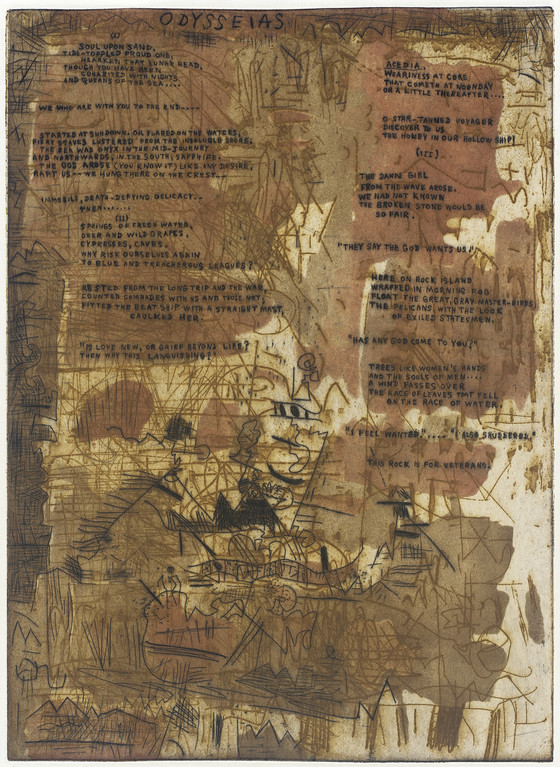 ODYSSEIAS
(I)
SOUL UPON SAND,
TIDE-TOPPLED PROUD ONE,
HEARKEN, THAT LUNAR HEAD,
THOUGH YOU HAVE BEEN
COHABITED WITH NIGHTS
AND QUEENS OF THE SEA....
WE WHO ARE WITH YOU TO THE END----
STARTED AT SUNDOWN. OIL FLARED ON THE WATERS,
FIERY STAVES LUSTERED FROM THE INSOLUBLE SHORE,
THE SEA WAS ONYX IN THE MID-JOURNEY
AND NORTHWARDS, IN THE SOUTH, SAPPHIRE.
THE GOD AROSE (YOU KNOW IT) LIKE ANY DESIRE,
RAPT US--WE HUNG THERE ON THE CREST..
IMMOBILE, DEATH-DEFYING DELICACY..
THEN......
(II)
SPRINGS OF FRESH WATER,
DEER AND WILD GRAPES,
CYPRESSES, CAVES,
WHY RISK OURSELVES AGAIN
TO BLUE AND TREACHEROUS LEAGUES?
RESTED FROM THE LONG TRIP AND THE WAR,
COUNTED COMRADES WITH US AND THOSE NOT,
FITTED THE BEAT SHIP WITH A STRAIGHT MAST,
CAULKED HER.
"IS LOVE NEW, OR GRIEF BEYOND LIFE?
THEN WHY THIS LANGUISHING?"
ACEDIA..
WEARINESS AT CORE
THAT COMETH AT NOONDAY
OR A LITTLE THEREAFTER....
O STAR-TANNED VOYAGER
DISCOVER TO US
THE HONEY IN OUR HOLLOW SHIP!
(III)
THE DAWN GIRL
FROM THE WAVE AROSE.
WE HAD NOT KNOWN
THE BROKEN STONE WOULD BE
SO FAIR.
"THEY SAY THE GOD WANTS US."
HERE ON ROCK ISLAND
WRAPPED IN MORNING FOG
FLOAT THE GREAT, GRAY MASTER-BIRDS,
THE PELICANS WITH THE LOOK
OF EXILED STATESMEN.
"HAS ANY GOD COME TO YOU?"
TREES LIKE WOMEN'S HANDS
AND THE SOULS OF MEN....
A WIND PASSES OVER
THE RACE OF LEAVES THAT FELL
ON THE RACE OF WATER.
"I FEEL WANTED."...."I ALSO SHUDDERED."
THIS ROCK IS FOR VETERANS.